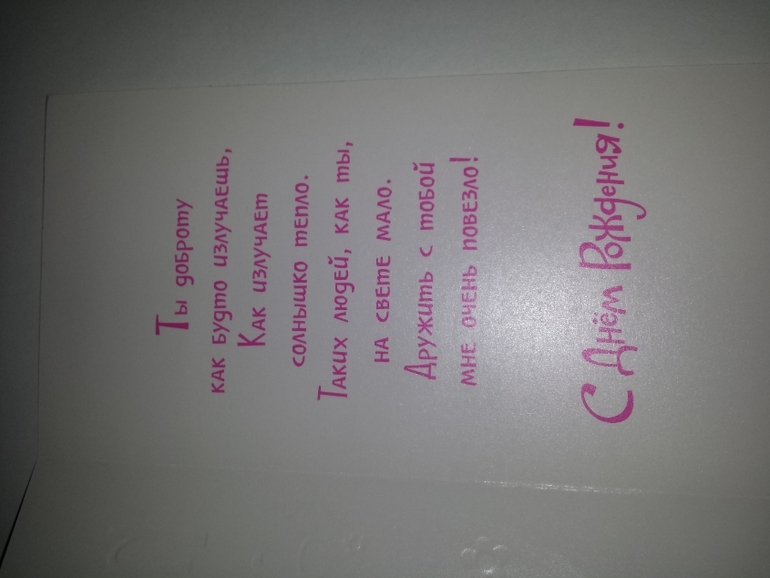 Ты доброту
как будто излучаешь,
Как излучает
солнышко тепло.
Таких людей, как ты,
на свете мало.
Дружить с тобой
мне очень повезло!
С Днём Рождения!